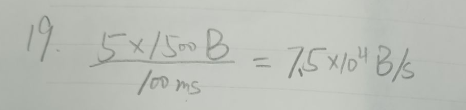 19. 5×1500B / 100ms = 7.5×10⁴ B/s